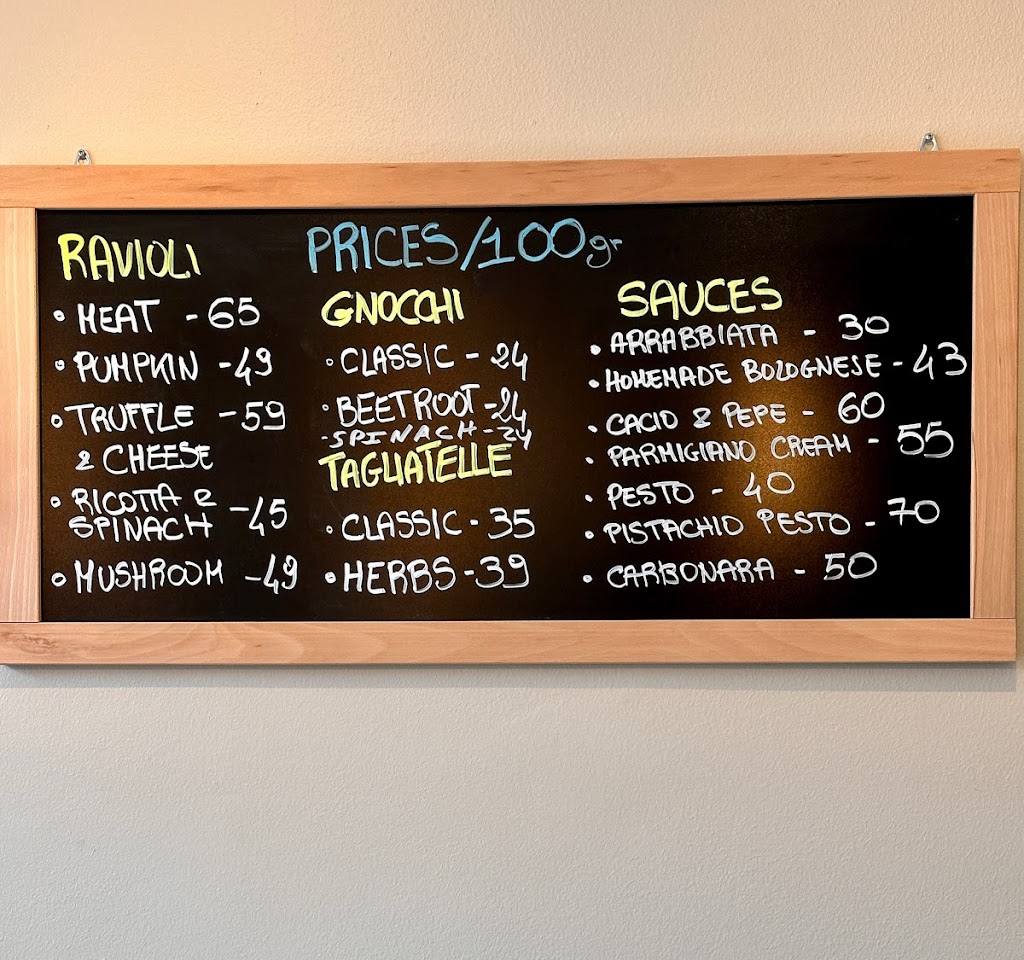 PRICES/100gr
RAVIOLI
• MEAT - 65
• PUMPKIN - 49
• TRUFFLE - 59
& CHEESE
• RICOTTA &
SPINACH - 45
• MUSHROOM - 49
GNOCCHI
• CLASSIC - 24
• BEETROOT - 24
- SPINACH - 24
TAGLIATELLE
• CLASSIC - 35
• HERBS - 39
SAUCES
• ARRABBIATA - 30
• HOMEMADE BOLOGNESE - 43
• CACIO & PEPE - 60
• PARMIGIANO CREAM - 55
• PESTO - 40
• PISTACHIO PESTO - 70
• CARBONARA - 50